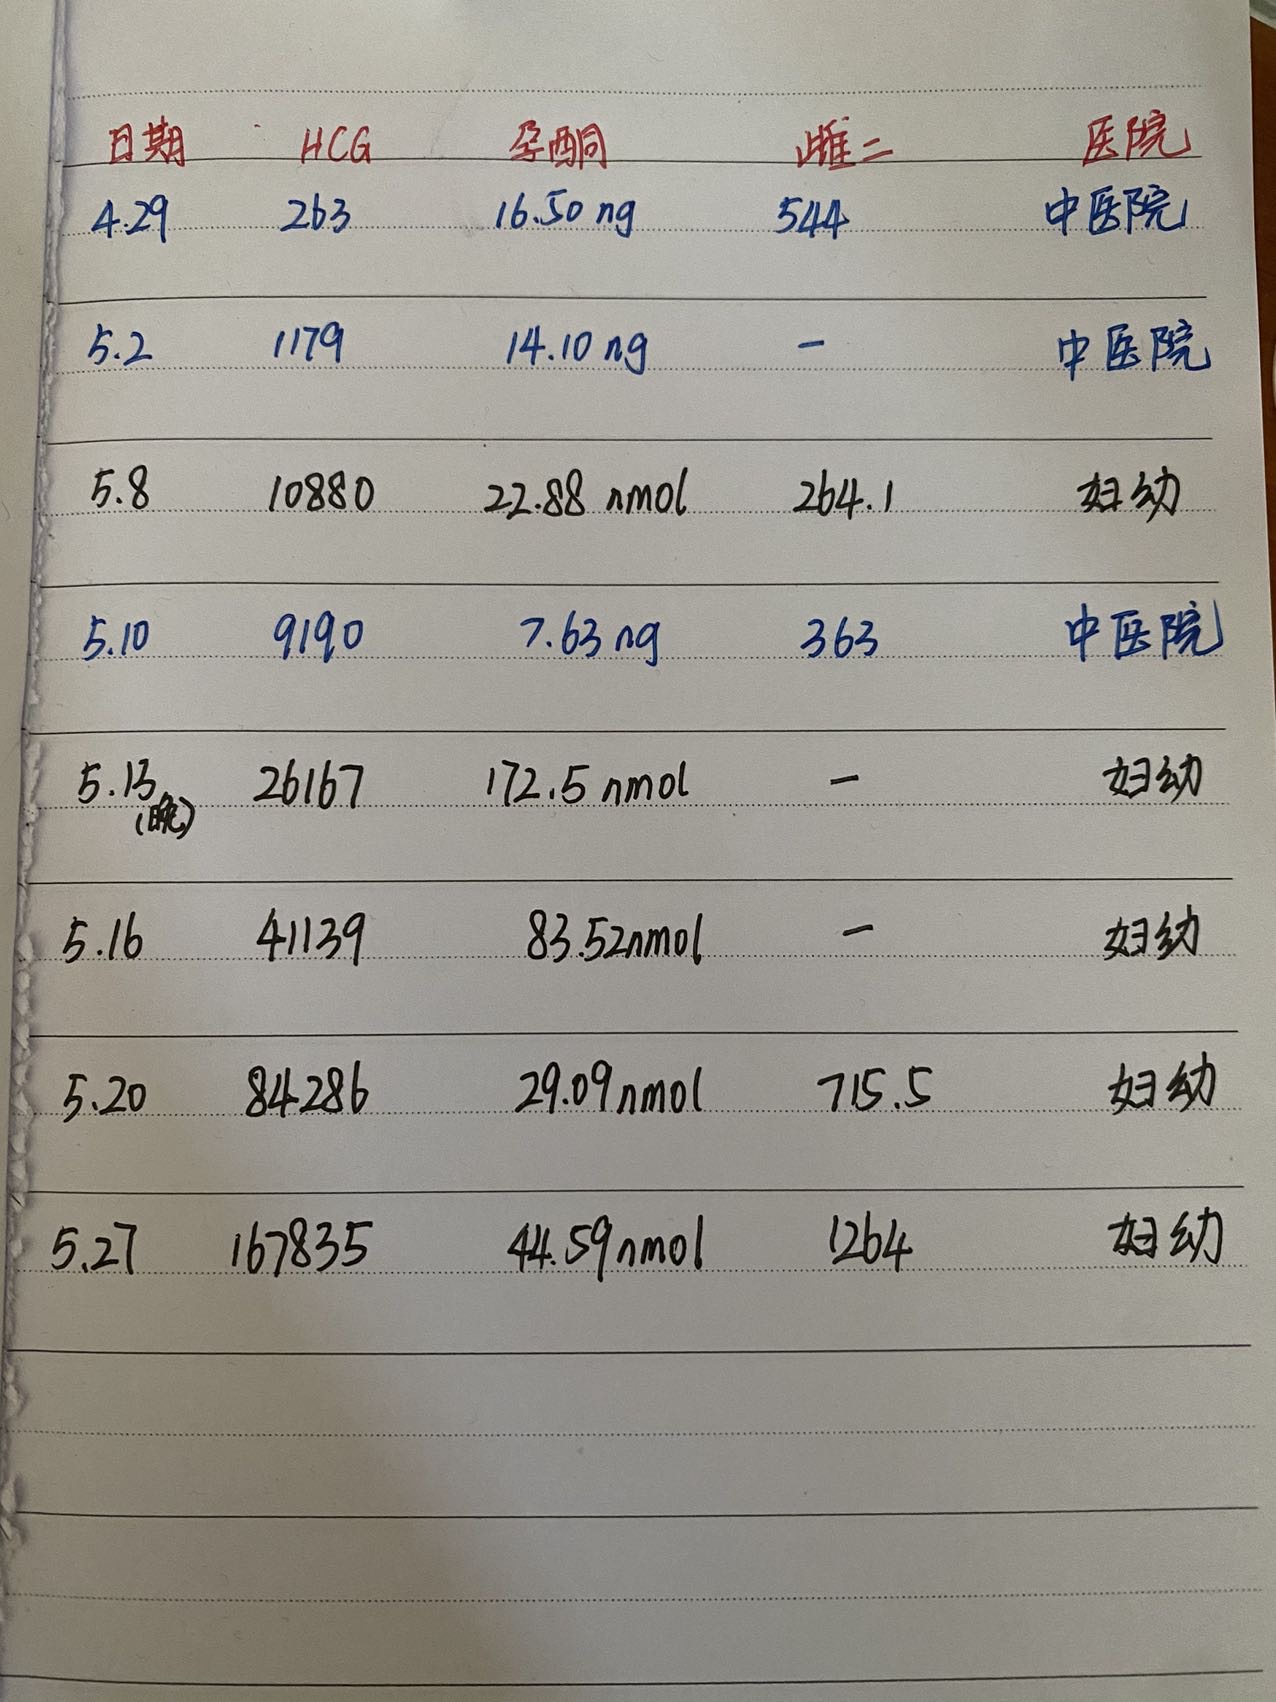 日期 HCG 孕酮 雌二 医院
4.29 263 16.50 ng 544 中医院
5.2 1179 14.10 ng - 中医院
5.8 10880 22.88 nmol 264.1 妇幼
5.10 9190 7.63 ng 363 中医院
5.13 26167 172.5 nmol - 妇幼
(晚)
5.16 41139 83.52nmol - 妇幼
5.20 84286 29.09nmol 715.5 妇幼
5.27 167835 44.59nmol 1264 妇幼